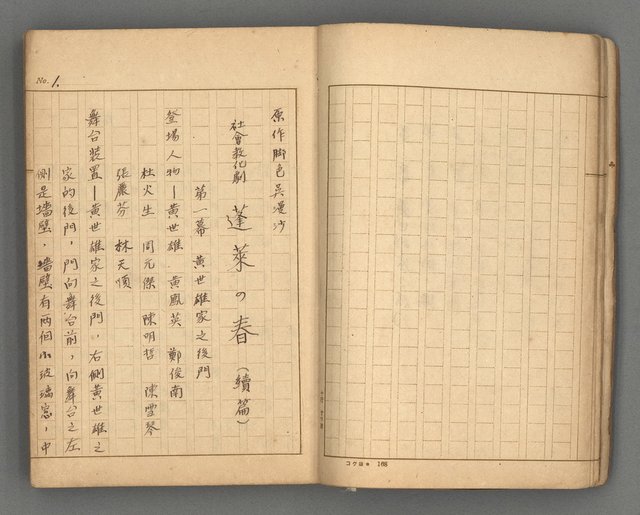 No. 1.
原作脚色吳漫沙
社會教化劇 蓬萊の春(續篇)
第一幕 黃世雄家之後門
登場人物—黃世雄 黃鳳英 鄭俊南
杜火生 周元傑 陳明哲 陳雪琴
張農芬 林天順
舞台裝置—黃世雄家之後門,右側黃世雄之
家的後門,門向舞台前,向舞台之左
側是墻壁,墻壁有兩個小玻璃窓,中
コクヨ 168